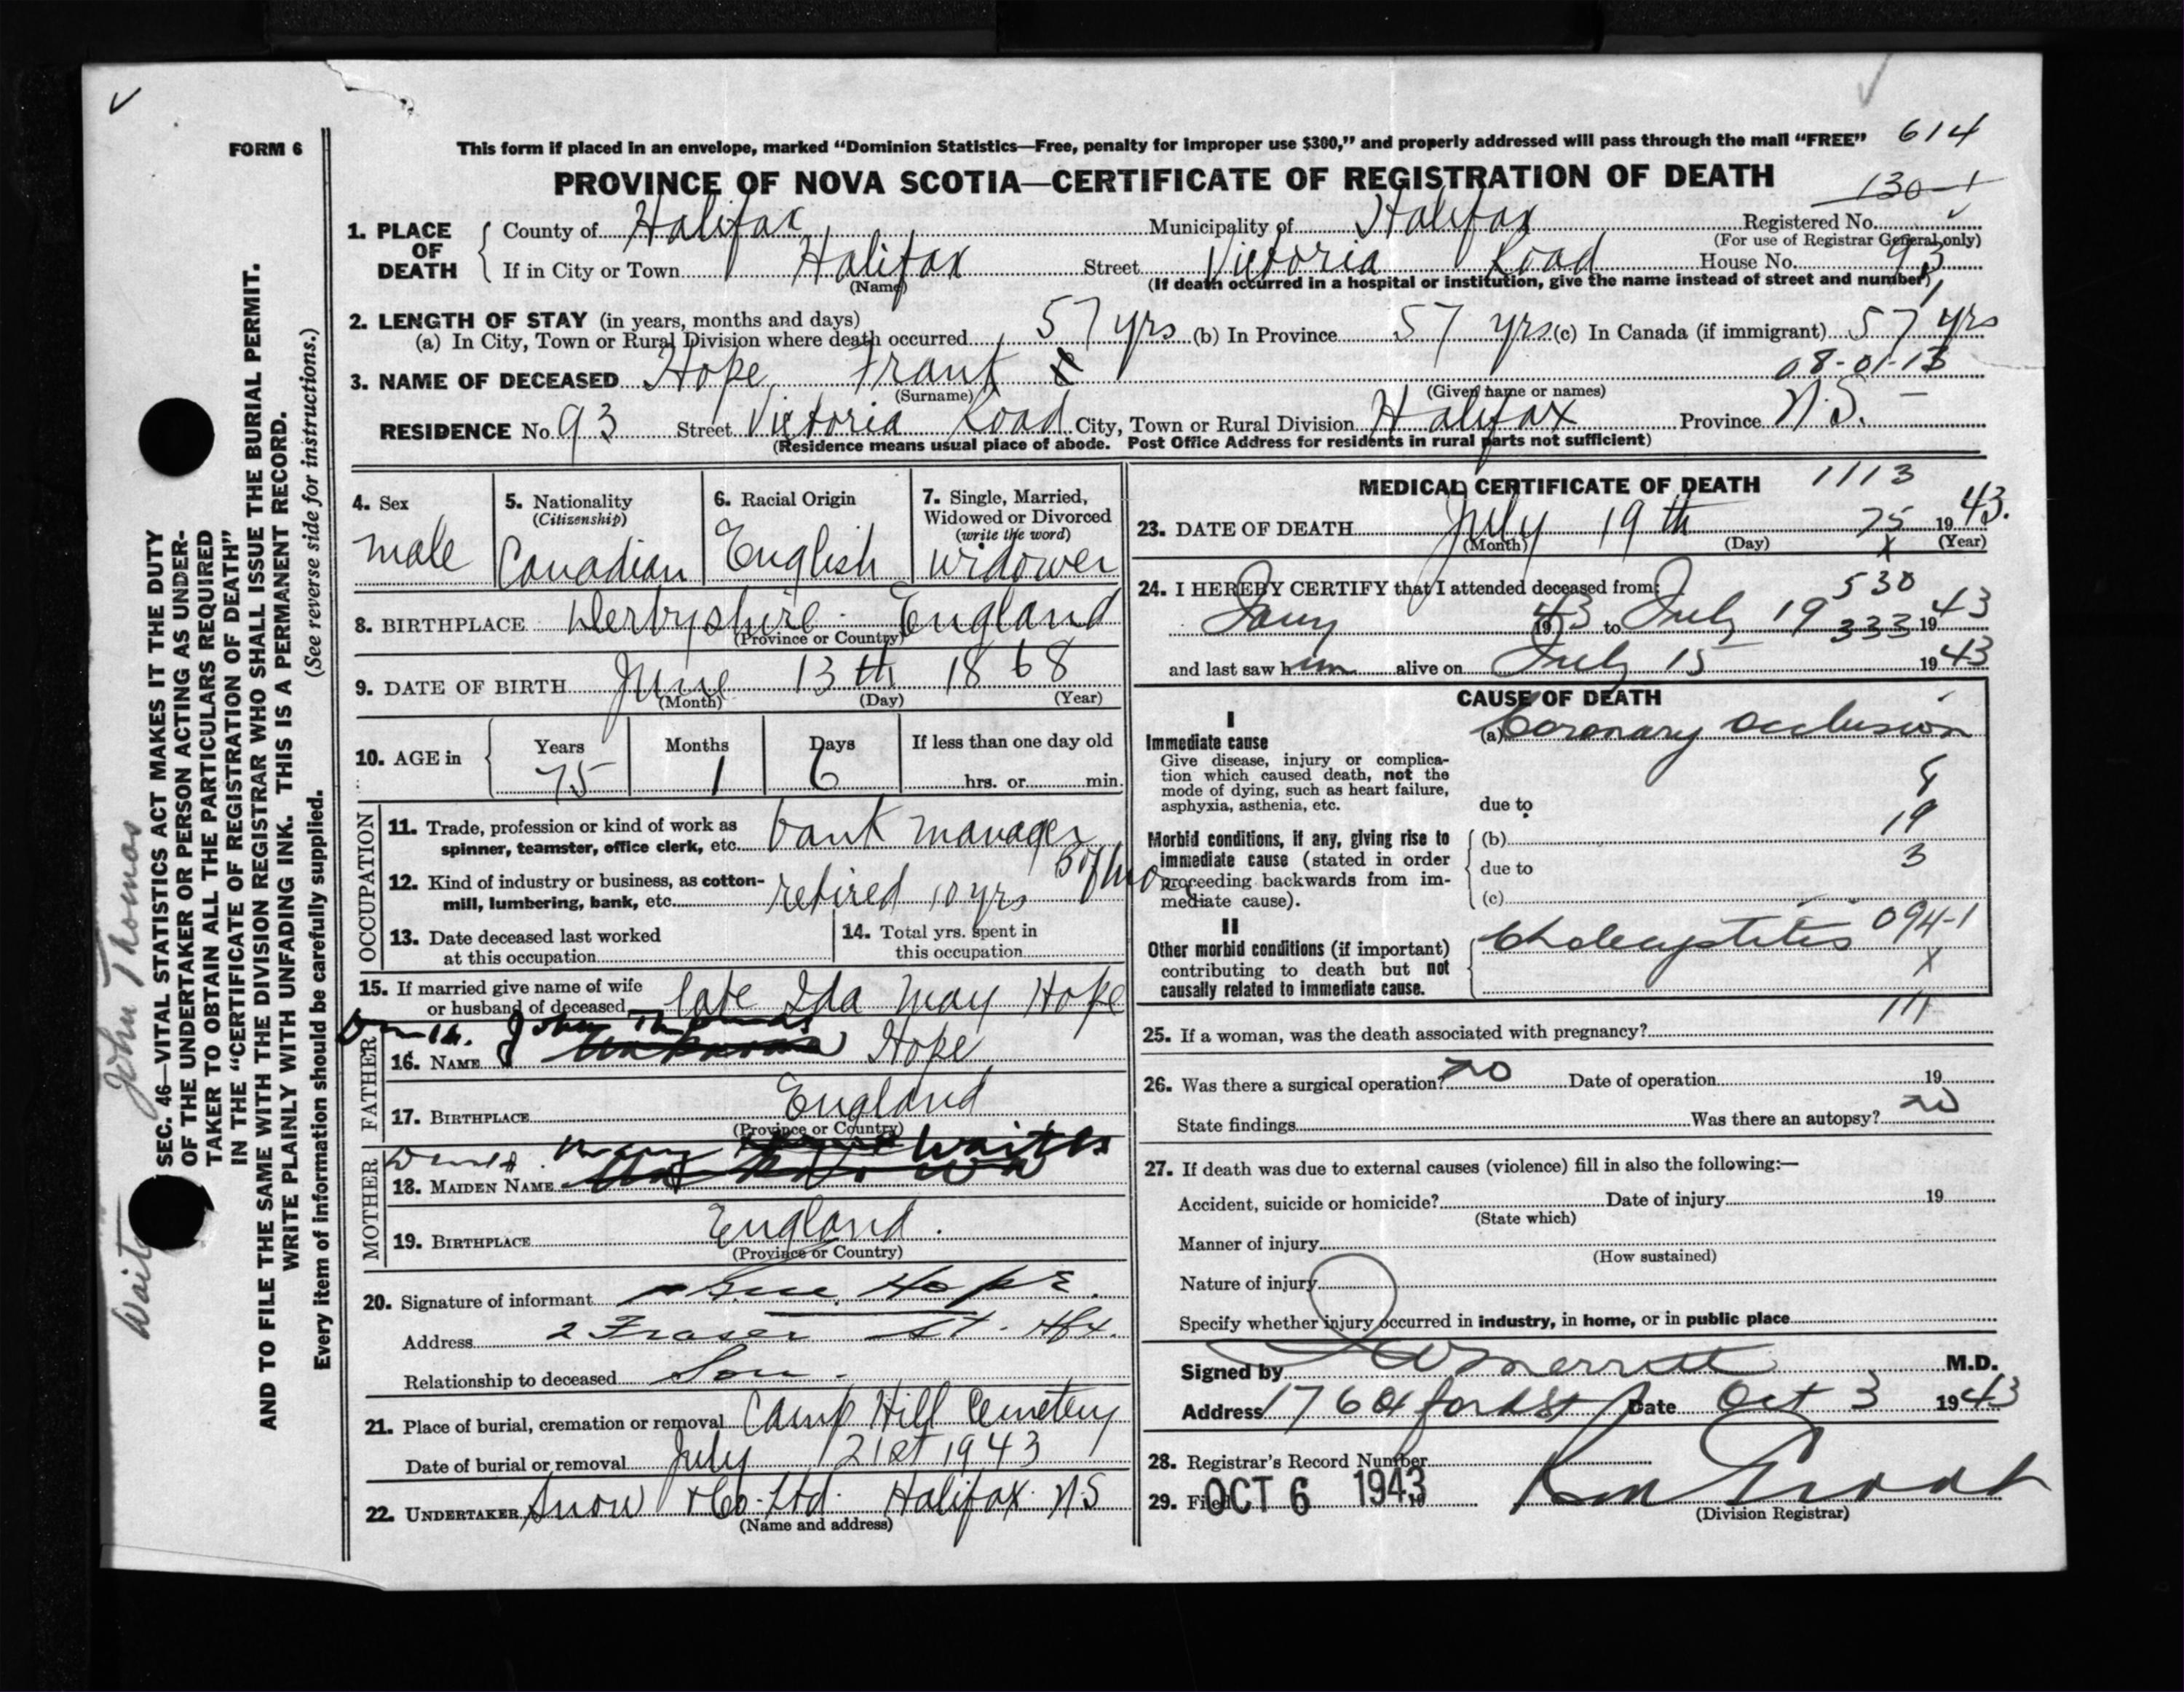 FORM 6
This form if placed in an envelope, marked “Dominion Statistics—Free, penalty for improper use $300,” and properly addressed will pass through the mail “FREE” 614
PROVINCE OF NOVA SCOTIA—CERTIFICATE OF REGISTRATION OF DEATH
130-1
1. PLACE OF DEATH
County of Halifax Municipality of Halifax Registered No.
(For use of Registrar General only)
If in City or Town Halifax Street Victoria Road House No. 93
(Name) (If death occurred in a hospital or institution, give the name instead of street and number)
2. LENGTH OF STAY (in years, months and days)
(a) In City, Town or Rural Division where death occurred 57 yrs (b) In Province 57 yrs (c) In Canada (if immigrant) 57 yrs
08-01-13
3. NAME OF DECEASED Hope, Frank
(Surname) (Given name or names)
RESIDENCE No. 93 Street Victoria Road City, Town or Rural Division Halifax Province N.S.
(Residence means usual place of abode. Post Office Address for residents in rural parts not sufficient)
4. Sex
male
5. Nationality
(Citizenship)
Canadian
6. Racial Origin
English
7. Single, Married,
Widowed or Divorced
(write the word)
widower
8. BIRTHPLACE Derbyshire England
(Province or Country)
9. DATE OF BIRTH June 13th 1868
(Month) (Day) (Year)
10. AGE in
Years Months Days If less than one day old
75 1 6 hrs. or min.
OCCUPATION
11. Trade, profession or kind of work as
spinner, teamster, office clerk, etc. bank manager
12. Kind of industry or business, as cotton-
mill, lumbering, bank, etc. retired 10 yrs
13. Date deceased last worked
at this occupation
14. Total yrs. spent in
this occupation
15. If married give name of wife
or husband of deceased late Ida May Hope
FATHER
John Thomas
16. NAME Hope
17. BIRTHPLACE England
(Province or Country)
MOTHER
Mary Waites
18. MAIDEN NAME
19. BIRTHPLACE England.
(Province or Country)
20. Signature of informant Hope.
Address 2 Fraser St. Hfx.
Relationship to deceased Son.
21. Place of burial, cremation or removal Camp Hill Cemetery
Date of burial or removal July 21st 1943
22. UNDERTAKER Snow & Co. Ltd. Halifax N.S
(Name and address)
MEDICAL CERTIFICATE OF DEATH 1113
23. DATE OF DEATH July 19th 75 1943.
(Month) (Day) (Year)
24. I HEREBY CERTIFY that I attended deceased from:
530
Jany 1943 to July 19 333 1943
and last saw him alive on July 15 1943
CAUSE OF DEATH
I
Immediate cause
Give disease, injury or complica-
tion which caused death, not the
mode of dying, such as heart failure,
asphyxia, asthenia, etc.
(a) Coronary occlusion
due to
Morbid conditions, if any, giving rise to
immediate cause (stated in order
proceeding backwards from im-
mediate cause).
19
(b)
3
due to
(c)
II
Other morbid conditions (if important)
contributing to death but not
causally related to immediate cause.
Cholecystitis 094-1
X
25. If a woman, was the death associated with pregnancy?
26. Was there a surgical operation? no Date of operation 19
State findings Was there an autopsy? no
27. If death was due to external causes (violence) fill in also the following:—
Accident, suicide or homicide? Date of injury 19
(State which)
Manner of injury
(How sustained)
Nature of injury
Specify whether injury occurred in industry, in home, or in public place
Signed by Merritt M.D.
Address 176 Oxford St Date Oct 3 1943
28. Registrar's Record Number
29. Filed OCT 6 1943 19
(Division Registrar)
SEC. 46—VITAL STATISTICS ACT MAKES IT THE DUTY
OF THE UNDERTAKER OR PERSON ACTING AS UNDER-
TAKER TO OBTAIN ALL THE PARTICULARS REQUIRED
IN THE “CERTIFICATE OF REGISTRATION OF DEATH”
AND TO FILE THE SAME WITH THE DIVISION REGISTRAR WHO SHALL ISSUE THE BURIAL PERMIT.
WRITE PLAINLY WITH UNFADING INK. THIS IS A PERMANENT RECORD.
(See reverse side for instructions.)
Every item of information should be carefully supplied.
John Thomas